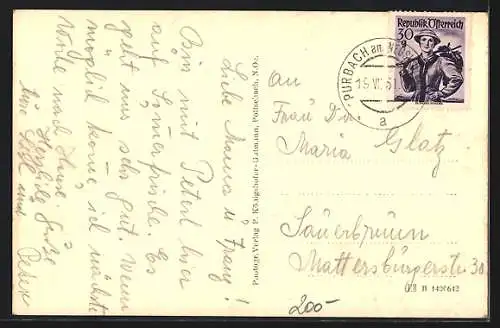 Liebe Mama u Franz!
Bin mit Peterl hier
auf Sommerfrische. Es
geht uns sehr gut. Wenn
möglich komme ich nächste
Woche nach Hause.
Herzliche Grüße
eure und
Peter
Postkarten-Verlag P. Königshofer-Gutmann, Pottschach, N.Ö.
Republik Österreich
30 g
PURBACH am
15.VI.51
a
An
Frau Dr.
Maria Glatz
Sauerbrunn
Mattersburgerstr 30
B 1420612
200-